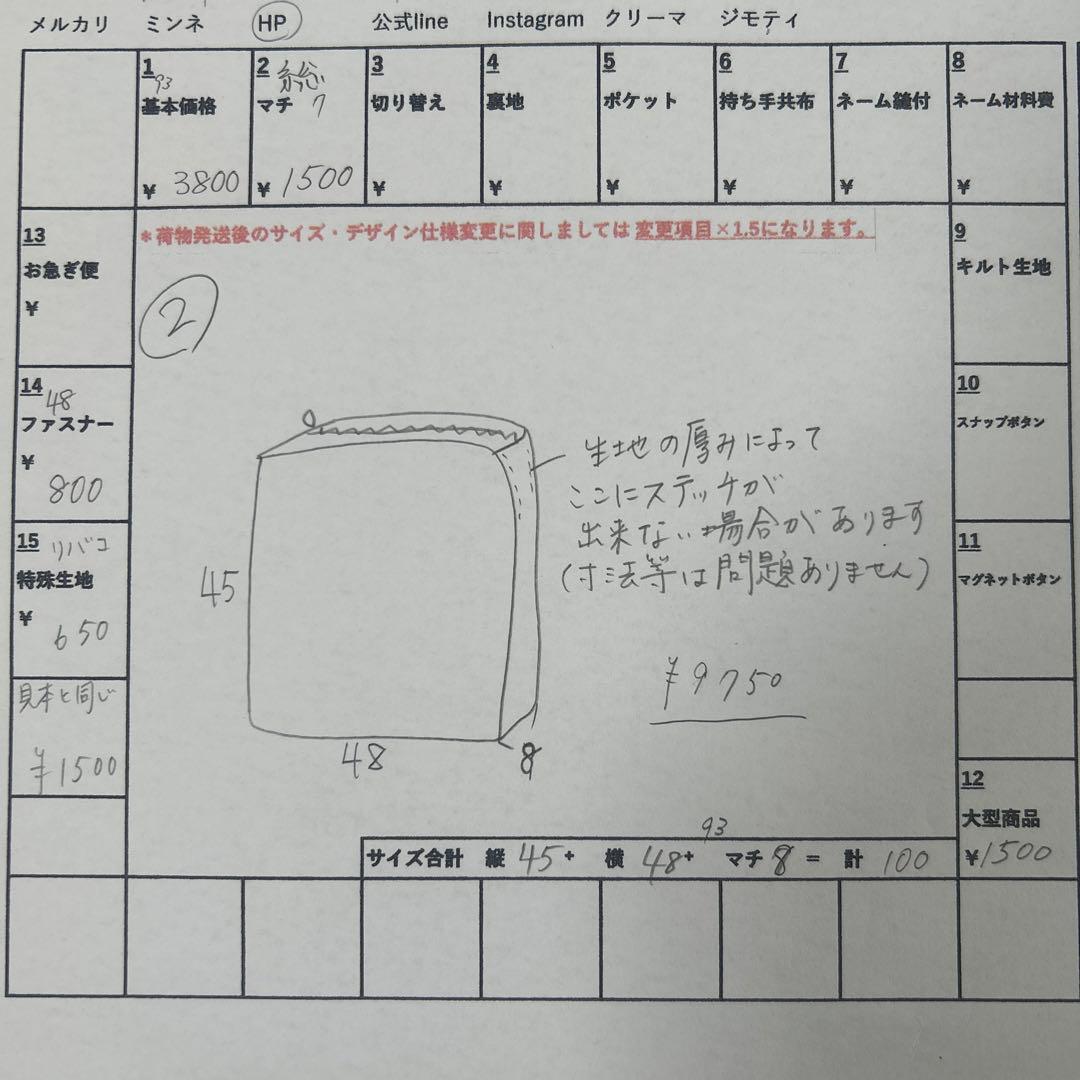 メルカリ ミンネ HP 公式line Instagram クリーマ ジモティ
1
93
基本価格
¥ 3800
2 総
マチ 7
¥ 1500
3
切り替え
¥
4
裏地
¥
5
ポケット
¥
6
持ち手共布
¥
7
ネーム縫付
¥
8
ネーム材料費
¥
13
お急ぎ便
¥
*荷物発送後のサイズ・デザイン仕様変更に関しましては 変更項目×1.5になります。
9
キルト生地
②
14
48
ファスナー
¥
800
10
スナップボタン
生地の厚みによって
ここにステッチが
出来ない場合があります
(寸法等は問題ありません)
15 リバコ
特殊生地
¥
650
11
マグネットボタン
45
48
8
¥9750
見本と同じ
¥1500
12
大型商品
¥1500
93
サイズ合計 縦 45+ 横 48+ マチ 8 = 計 100